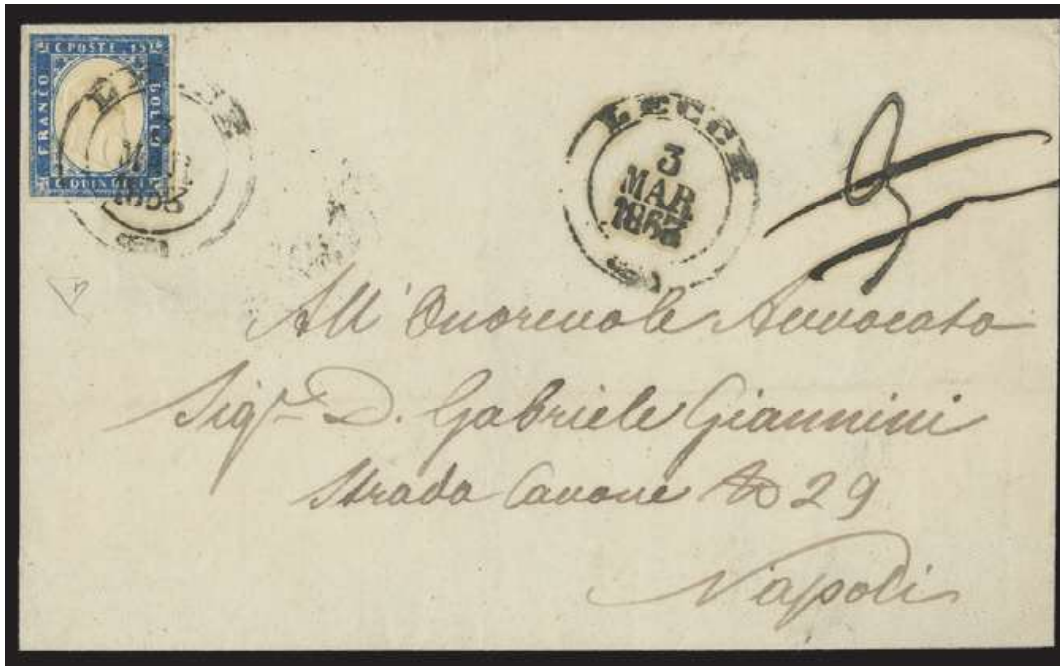 C POSTE 15
FRANCO
BOLLO
C QUINDICI
LECCE
3
MAR
1863
All' Onorevole Avvocato
Sigr D. Gabriele Giannini
Strada Cavone No 29
Napoli